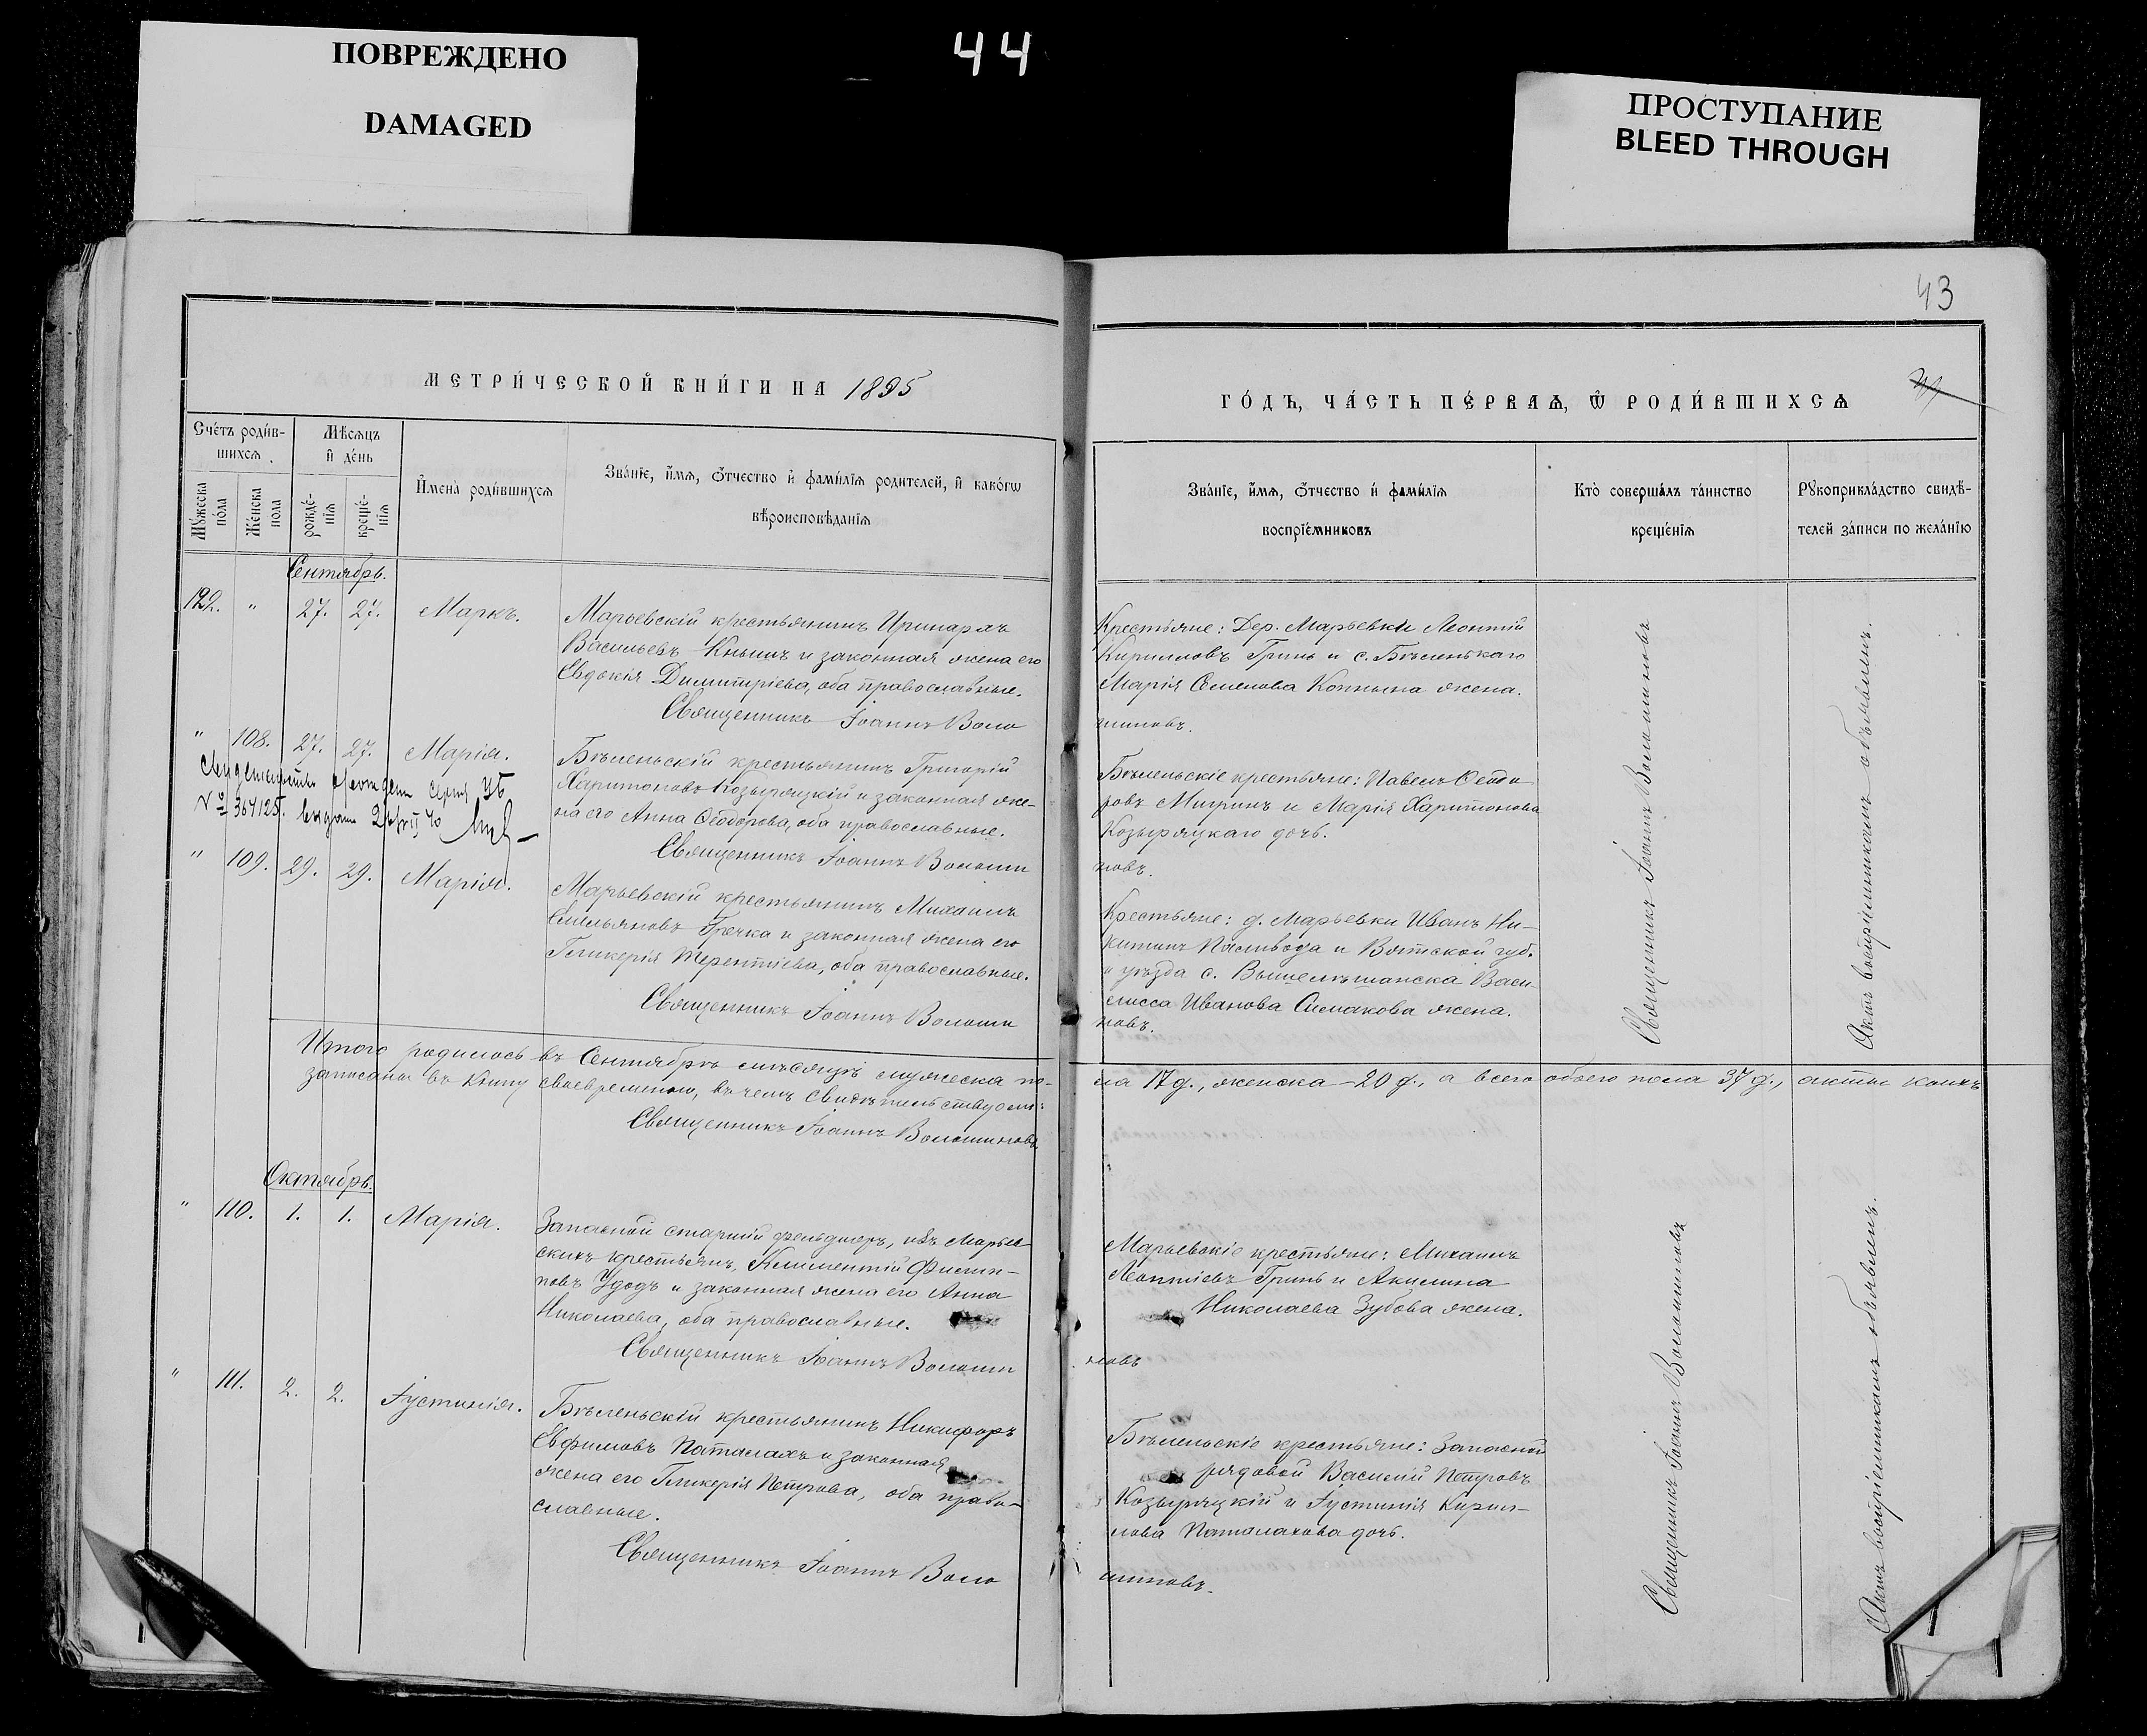 ПОВРЕЖДЕНО
DAMAGED
44
ПРОСТУПАНИЕ
BLEED THROUGH
43
МЕТРИ́ЧЕСКОЙ КНИ́ГИ НА 1895
ГО́ДЪ, ЧА́СТЬ ПЕ́РВАѦ, Ѡ҆ РОДИ́ВШИХСѦ
Сче́тъ роди́в-
шихсѧ
Мѣ́сѧцъ
и҆ де́нь
Мꙋ́жеска
по́ла
Же́нска
пола
рожде́-
нїѧ
креще́-
нїѧ
И҆мена̀ роди́вшихсѧ
Зва́нїе, и҆́мѧ, ѻ҆́тчество и҆ фами́лїѧ родителей, и҆ како́гѡ
вѣроисповѣ́данїѧ
Зва́нїе, и҆́мѧ, ѻ҆́тчество и҆ фами́лїѧ
воспрїе́мниковъ
Кто̀ соверша́лъ та́инство
креще́нїѧ
Рꙋкоприкла́дство свидѣ́-
телей за́писи по жела́нїю
Сентябрь.
122. " 27. 27. Маркъ.
Марьевскій крестьянинъ Иринархъ
Васильевъ Кнышъ и законная жена его
Евдокія Димитріева, оба православные.
Священникъ Іоаннъ Воло
Крестьяне: Дер. Марьевки Леонтій
Кирилловъ Гринь и с. Бѣленькаго
Марія Семенова жена.
шиновъ.
" 108. 27. 27. Марія.
№ 364125.
Бѣленьскій крестьянинъ Григорій
Харитоновъ Козыряцкій и законная же-
на его Анна Ѳеодорова, оба православные.
Священникъ Іоаннъ Волоши
Бѣленьскіе крестьяне: Павелъ Ѳеодо-
ровъ и Марія Харитонова
Козыряцкаго дочь.
новъ.
" 109. 29. 29. Марія.
Марьевскій крестьянинъ Михаилъ
Емельяновъ Гречка и законная жена его
Гликерія Терентіева, оба православные.
Священникъ Іоаннъ Волоши
Крестьяне: д. Марьевки Иванъ Ни-
китинъ Паливода и Вятской губ.
и уѣзда с. Васи-
лисса Иванова Симакова жена.
новъ.
Священникъ Іоаннъ Волошиновъ
Актъ воспріемникамъ объявленъ.
Итого родилось въ Сентябрѣ мѣсяцѣ мужеска по-
ла 17 д., женска – 20 д., а всего обоего пола 37 д., акты коихъ
записаны въ книгу своевременно, въ чемъ свидѣтельствуемъ:
Священникъ Іоаннъ Волошиновъ
Октябрь.
" 110. 1. 1. Марія.
Запасной старшій фельдшеръ, изъ Марьев-
скихъ крестьянъ, Климентій Филип-
повъ Удодъ и законная жена его Анна
Николаева, оба православные.
Священникъ Іоаннъ Волоши
Марьевскіе крестьяне: Михаилъ
Леонтіевъ Гринь и Акилина
Николаева Зубова жена.
новъ
" 111. 2. 2. Іустинія.
Бѣленьскій крестьянинъ Никифоръ
Евфимовъ Паталахъ и законная
жена его Гликерія Петрова, оба право-
славные.
Священникъ Іоаннъ Воло
Бѣленьскіе крестьяне: Запасной
рядовой Василій Петровъ
Козыряцкій и Іустинія Кирил-
лова Паталахова дочь.
шиновъ.
Священникъ Іоаннъ Волошиновъ
Актъ воспріемникамъ объявленъ.